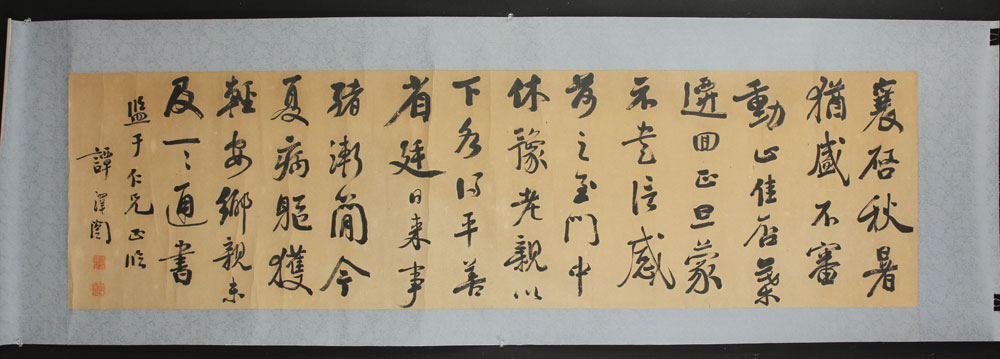 襄啓秋暑
猶盛不審
動止佳否葉
回正旦蒙
示信感
荷之至門中
休豫老親以
下各得平善
省廷日来事
緒漸簡今
夏病軀獲
輕安鄉親未
及一〻通書
監于仁兄正临
譚澤闓